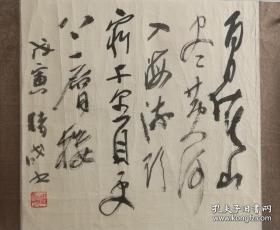 白日依山
尽黄河
入海流欲
窮千里目更
上一層楼
戊寅 书
孔夫子旧书网